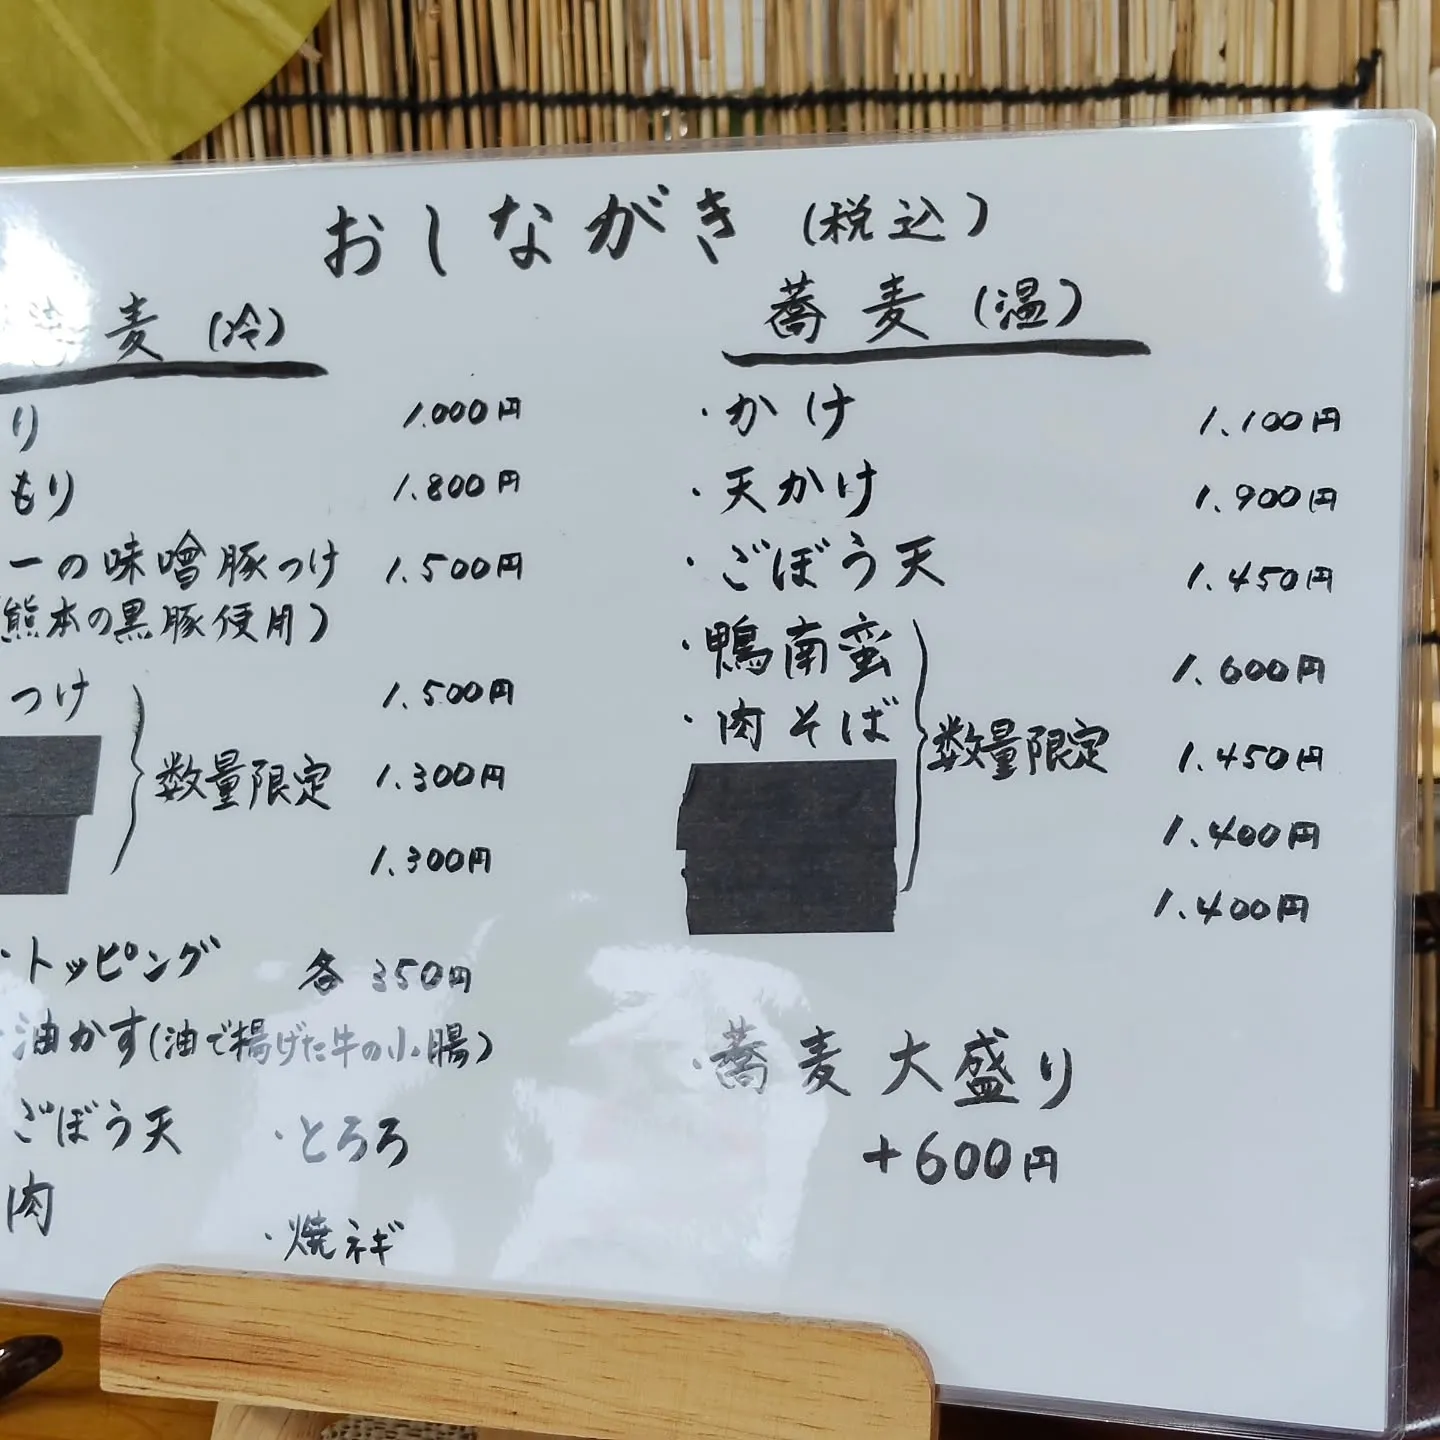 おしながき (税込)
麦 (冷)
り 1.000円
もり 1.800円
ーの味噌豚つけ 1.500円
熊本の黒豚使用)
つけ 1.500円
数量限定 1.300円
1.300円
・トッピング 各 350円
・油かす(油で揚げた牛の小腸)
ごぼう天 ・とろろ
肉
・焼ネギ
蕎麦 (温)
・かけ 1.100円
・天かけ 1.900円
・ごぼう天 1.450円
・鴨南蛮 1.600円
・肉そば 数量限定 1.450円
1.400円
1.400円
・蕎麦大盛り
+600円